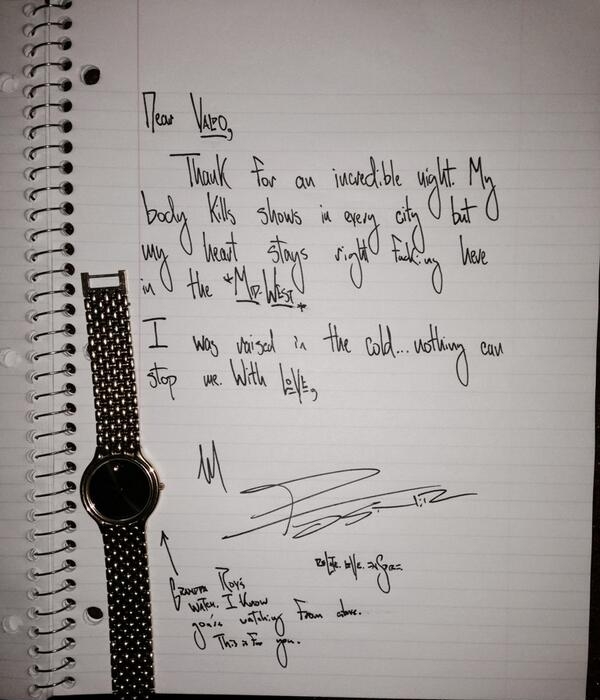 Dear VALPO,
Thank for an incredible night. My
body kills shows in every city but
my heart stays right fucking here
in the *MID-WEST*
I was raised in the cold... nothing can
stop me. With LOVE,
M
Grandpa Roy's
watch. I know
you're watching from above.
This is for you.